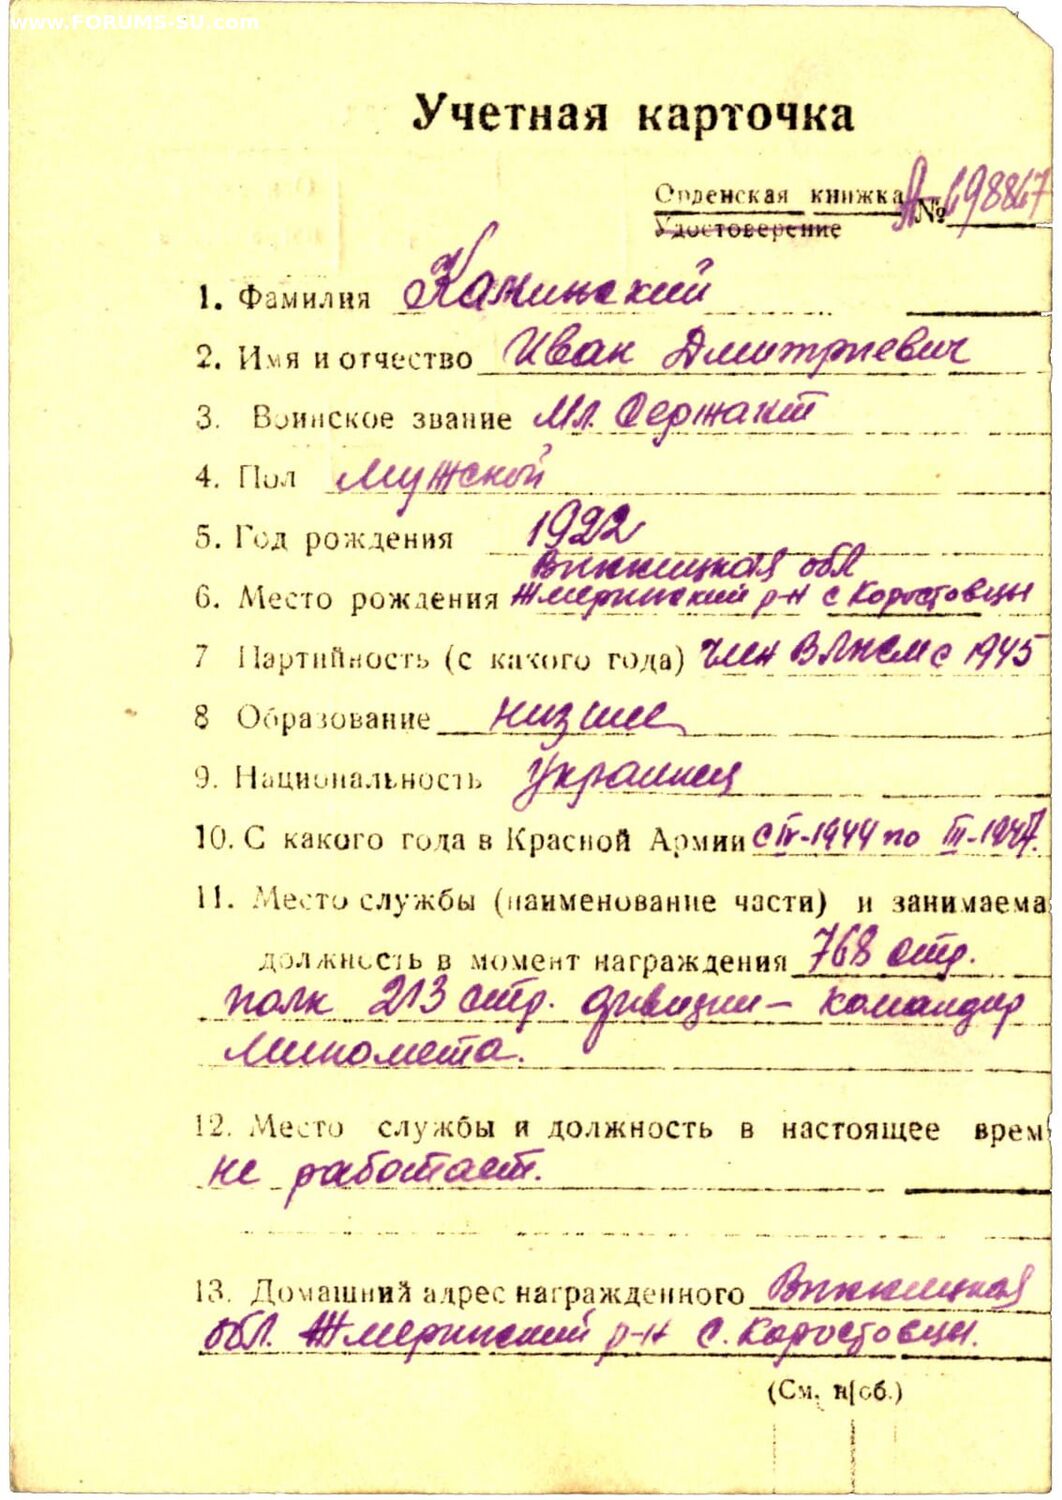 www.FORUMS-SU.com
Учетная карточка
Орденская книжка А № 698867
Удостоверение
1. Фамилия Каминский
2. Имя и отчество Иван Дмитриевич
3. Воинское звание Мл. Сержант
4. Пол Мужской
5. Год рождения 1922
Винницкая обл
6. Место рождения Жмеринский р-н с Коростовцы
7 Партийность (с какого года) Член ВЛКСМ с 1945
8 Образование низшее
9. Национальность Украинец
10. С какого года в Красной Армии с IV-1944 по III-1947.
11. Место службы (наименование части) и занимаема
должность в момент награждения 768 стр.
полк 213 стр. дивизии – командир
Миномета.
12. Место службы и должность в настоящее врем
не работает.
13. Домашний адрес награжденного Винницкая
обл. Жмеринский р-н с. Коростовцы.
(См. н/об.)